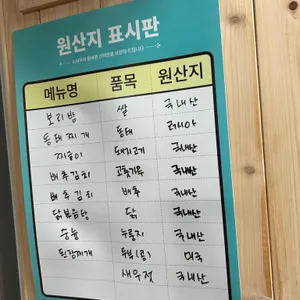 원산지 표시판
메뉴명 품목 원산지
보리밥 쌀 국내산
동태찌개 동태 러시아
찌중이 돼지고기 국내산
배추김치 고춧가루 국내산
배추김치 배추 국내산
닭볶음탕 닭 국내산
숭늉 누룽지 국내산
된장찌개 두부(콩) 미국
새우젓 국내산